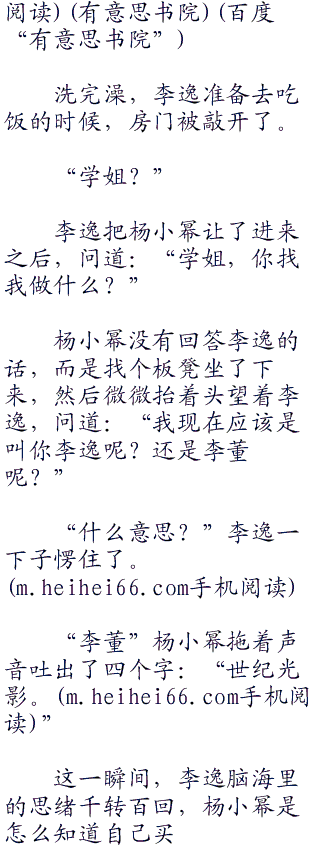 阅读)(有意思书院)(百度
“有意思书院”)
洗完澡，李逸准备去吃
饭的时候，房门被敲开了。
“学姐？”
李逸把杨小幂让了进来
之后，问道：“学姐，你找
我做什么？”
杨小幂没有回答李逸的
话，而是找个板凳坐了下
来，然后微微抬着头望着李
逸，问道：“我现在应该是
叫你李逸呢？还是李董
呢？”
“什么意思？”李逸一
下子愣住了。
(m.heihei66.com手机阅读)
“李董”杨小幂拖着声
音吐出了四个字：“世纪光
影。(m.heihei66.com手机阅
读)”
这一瞬间，李逸脑海里
的思绪千转百回，杨小幂是
怎么知道自己买